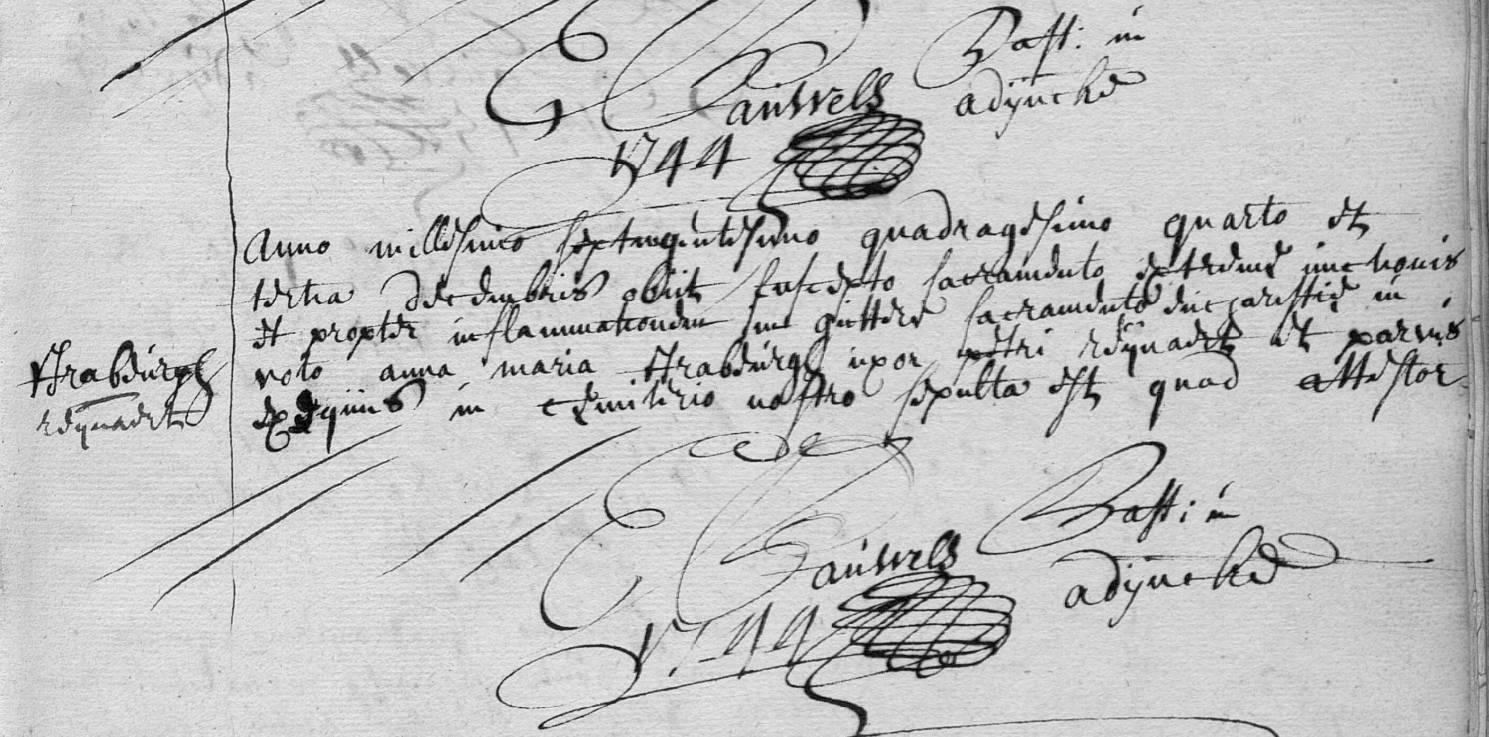 Pauwels Past: in
adijncke
1744
anno millesimo septingintesimo quadragesimo quarto et
tertia decembris obiit suscepto sacramento extreme unctionis
et propter inflammationem in gutture sacramento eucaristie in
voto anna maria Strabeurgh uxor petri reijnaert et parvis
exequiis in cemiterio nostro sepulta est quod attestor
Strabeurgh
reijnaert
Pauwels Past: in
adijncke
1744